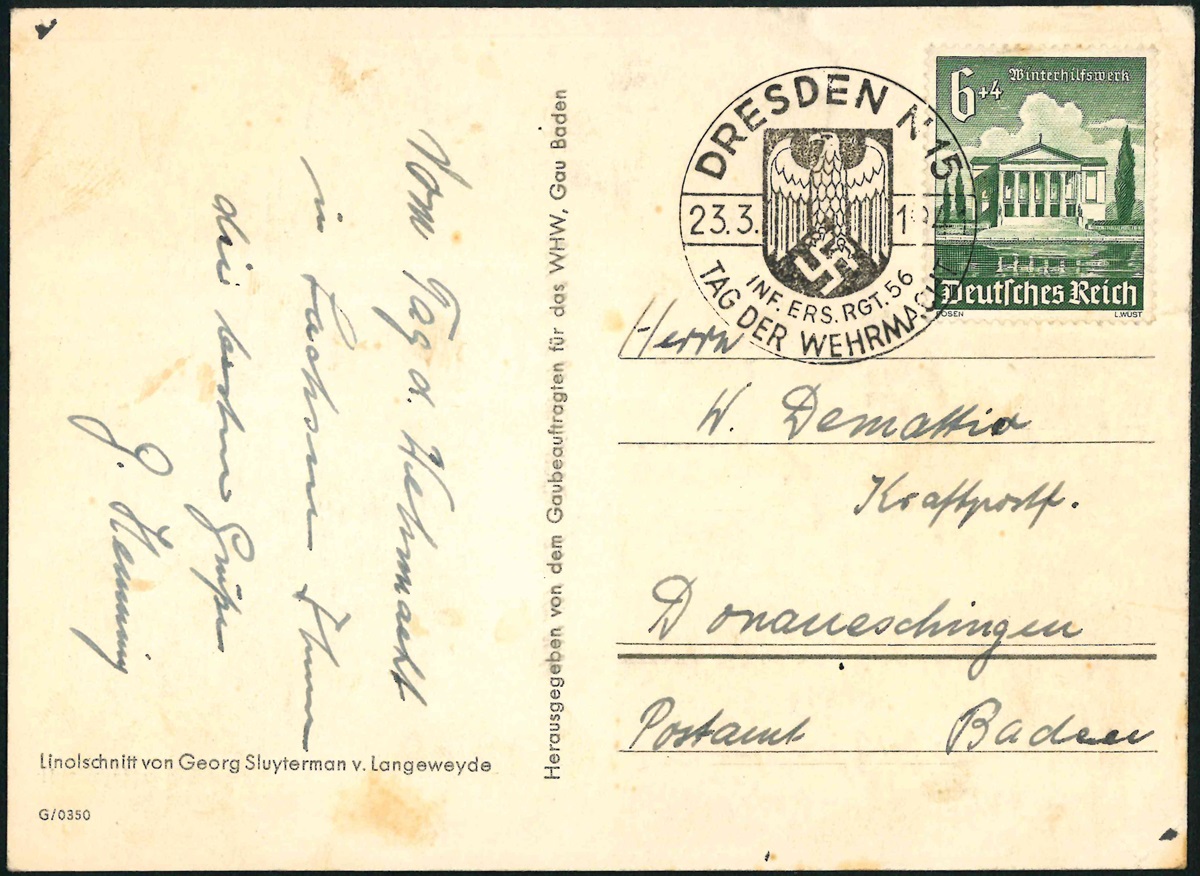 Vom Tag d. Wehrmacht
in Sachsen Ihnen
die besten Grüße
G. Henning
Linolschnitt von Georg Sluyterman v. Langeweyde
G/0350
Herausgegeben von dem Gaubeauftragten für das WHW, Gau Baden
DRESDEN N 15
23.3. 194
INF. ERS. RGT. 56
TAG DER WEHRMACHT
6+4 Winterhilfswerk
Deutsches Reich
POSEN L.WÜST
Herrn
W. Demattio
Kraftpostf.
Donaueschingen
Postamt Baden